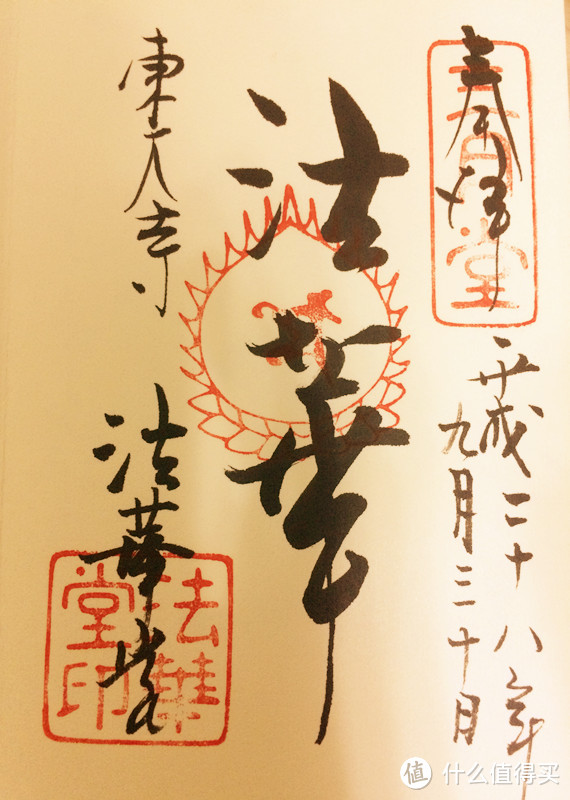 奉拝
三月堂
平成二十八年
九月三十日
法華
東大寺
法華堂
法華
堂印
值 什么值得买